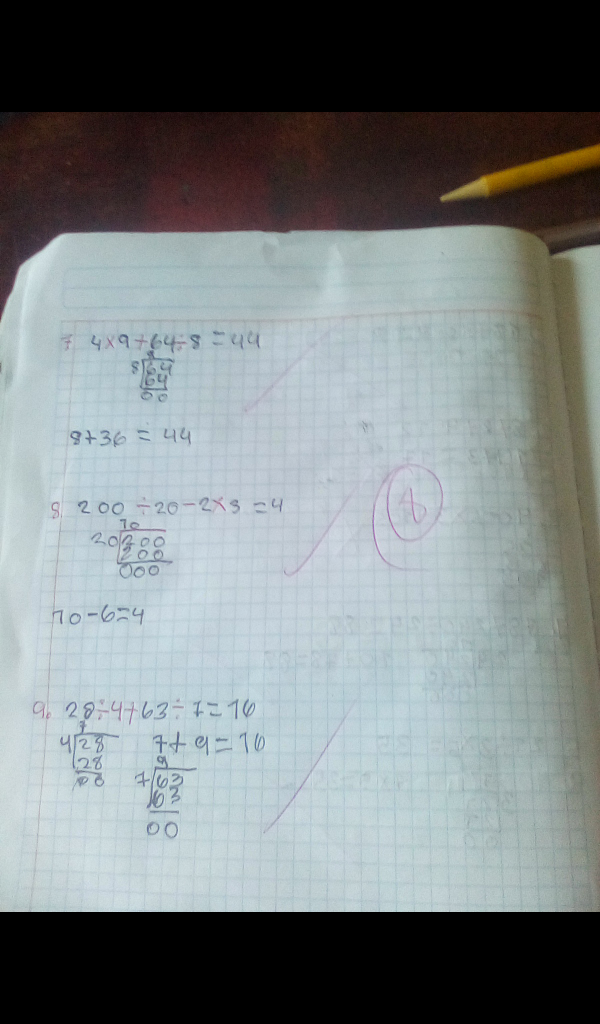 7. 4×9+64÷8=44
8
8 64
64
00
8+36=44
8. 200÷20-2×3=4
10
20 200
200
000
10-6=4
9. 28÷4+63÷7=16
7
4 28
28
00
7+9=16
9
7 63
63
00